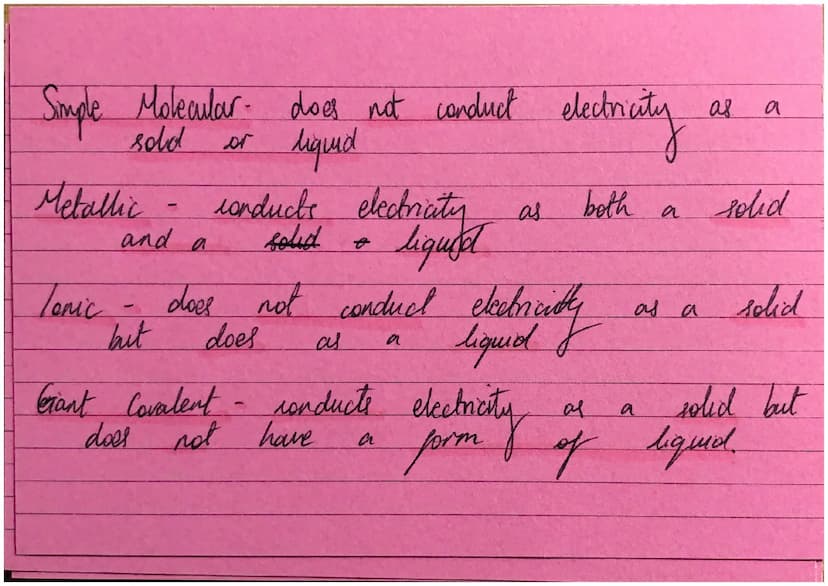 Simple Molecular - does not conduct electricity as a
solid or liquid
Metallic - conducts electricity as both a solid
and a ~~solid o~~ liquid
Ionic - does not conduct electricity as a solid
but does as a liquid
Giant Covalent - conducts electricity as a solid but
does not have a form of liquid.